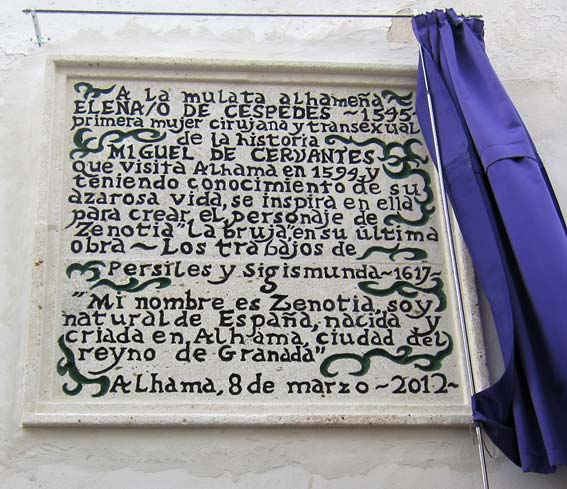 A la mulata alhameña
ELENA/O DE CESPEDES ~1545~
primera mujer cirujana y transexual
de la historia
MIGUEL DE CERVANTES
que visitá Alhama en 1594, y
teniendo conocimiento de su
azarosa vida, se inspira en ella
para crear el personaje de
Zenotia "La bruja", en su última
obra ~ Los trabajos de
Persiles y Sigismunda ~1617~
"Mi nombre es Zenotia, soy
natural de España, nacida y
criada en Alhama, ciudad del
reyno de Granada"
Alhama, 8 de marzo ~2012~